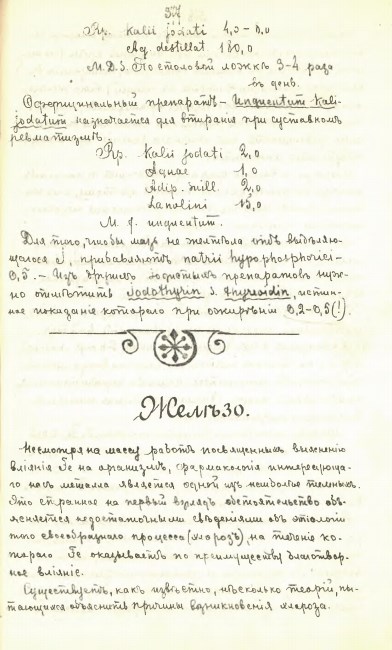 37
Rp. Kalii jodati 4,0 – 8,0
Aq. destillat 180,0
M.D.S. По столовой ложкѣ 3–4 раза
въ день.
Оффицинальный препаратъ – Unguentum Kali-
jodatum назначается для втиранія при суставномъ
ревматизмѣ.
Rp. Kalii jodati 2,0
Aquae 1,0
Adip. suill. 2,0
Lanolini 15,0
M. f. unguentum.
Для того, чтобы мазь не желтѣла отъ выдѣляю-
щагося J, прибавляютъ natrii hyposphoricies-
0,5. – Изъ другихъ іодистыхъ препаратовъ нуж-
но отмѣтить Jodothyrin s. thyroidin, истин-
ное показаніе котораго при ожирѣніи 0,2–0,5(!).
Желѣзо.
Несмотря на массу работъ посвященныхъ выясненію
вліянія Fe на организмъ, фармакологія интересующа-
го насъ металла является одной изъ наиболѣе темныхъ.
Это странное на первый взглядъ обстоятельство объ-
ясняется недостаточными свѣдѣніями объ этіологіи
того своеобразнаго процесса (хлорозъ), на теченіе ко-
тораго Fe оказываетъ по преимуществу благотвор-
ное вліяніе.
Существуетъ, какъ извѣстно, нѣсколько теорій, пы-
тающихся объяснить причины возникновенія хлороза.